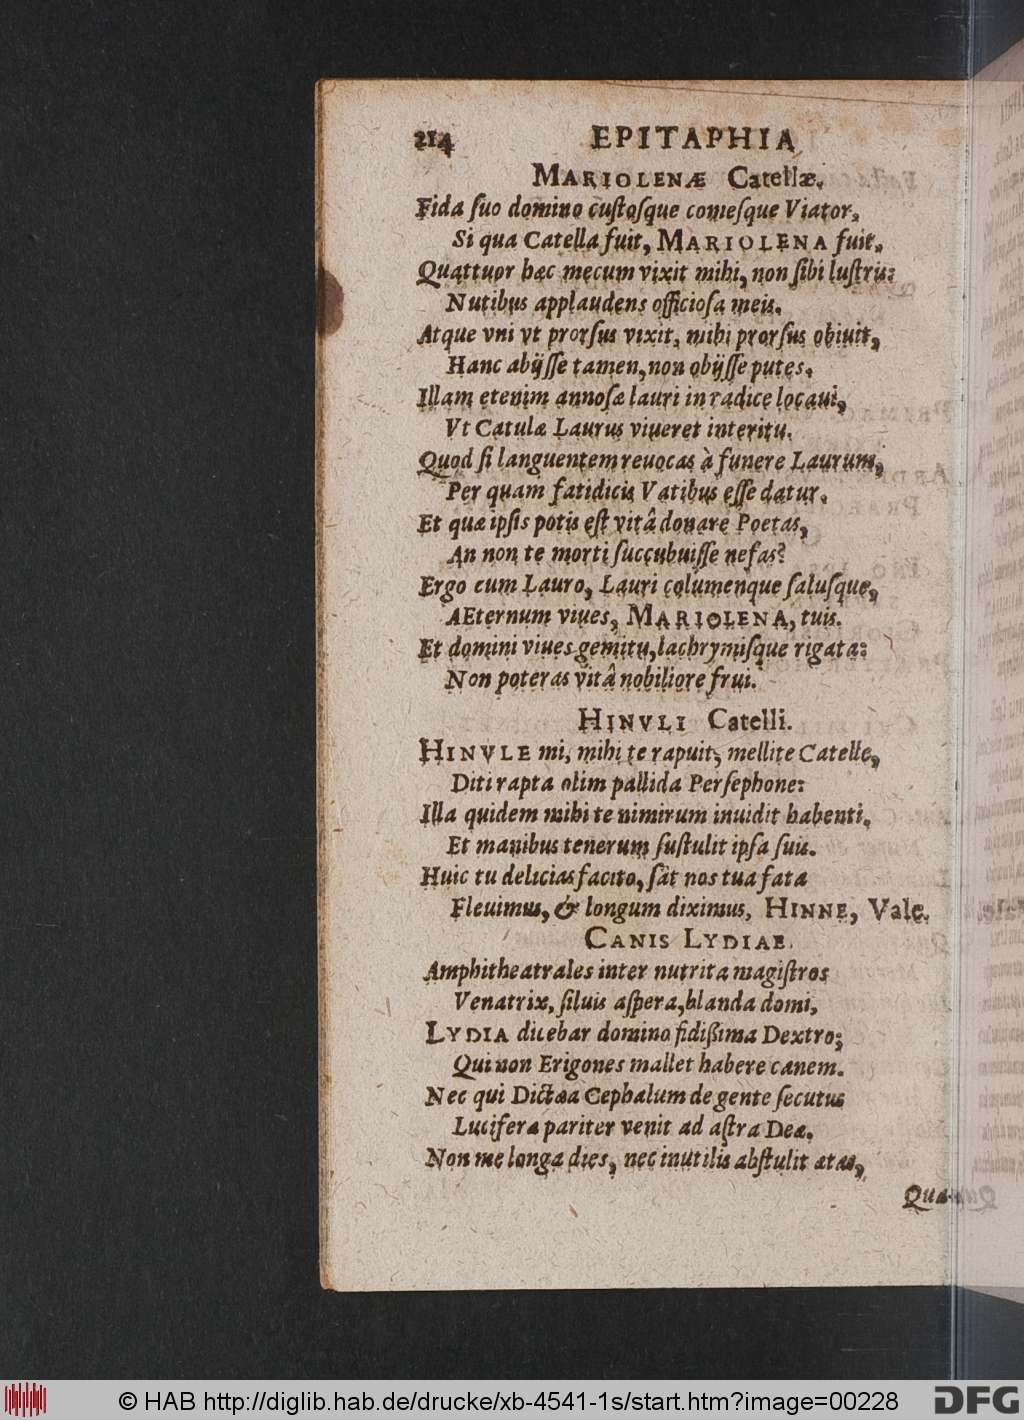 214 EPITAPHIA
MARIOLENÆ Catellæ.
Fida ſuo domino cuſtoſque comeſque Viator,
Si qua Catella fuit, MARIOLENA fuit,
Quattuor hæc mecum vixit mihi, non ſibi luſtris:
Nutibus applaudens officioſa meis.
Atque vni vt prorſus vixit, mihi prorſus obiuit,
Hanc abijſſe tamen, non obijſſe putes.
Illam etenim annoſæ lauri in radice locaui,
Vt Catulæ Laurus viueret interitu.
Quod ſi languentem reuocas à funere Laurum,
Per quam fatidicis Vatibus eſſe datur.
Et quæ ipſis potis eſt vitâ donare Poetas,
An non te morti ſuccubuiſſe nefas?
Ergo cum Lauro, Lauri columenque ſaluſque,
AEternum viues, MARIOLENA, tuis.
Et domini viues gemitu, lachrymiſque rigata:
Non poteras vitâ nobiliore frui.
HINVLI Catelli.
HINVLE mi, mihi te rapuit, mellite Catelle,
Diti rapta olim pallida Perſephone:
Illa quidem mihi te nimirum inuidit habenti,
Et manibus tenerum ſuſtulit ipſa ſuis.
Huic tu delicias facito, ſàt nos tua fata
Fleuimus, & longum diximus, HINNE, Vale.
CANIS LYDIAE.
Amphitheatrales inter nutrita magiſtros
Venatrix, ſiluis aſpera, blanda domi,
LYDIA dicebar domino fidißima Dextro;
Qui non Erigones mallet habere canem.
Nec qui Dictæa Cephalum de gente ſecutus
Luciferæ pariter venit ad aſtra Deæ.
Non me longa dies, nec inutilis abſtulit ætas,
Qua-
© HAB http://diglib.hab.de/drucke/xb-4541-1s/start.htm?image=00228
DFG